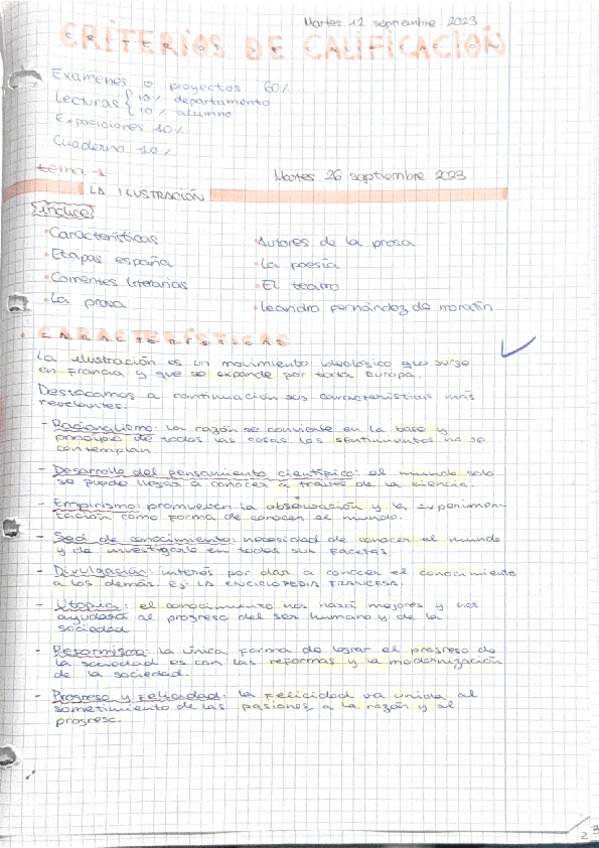 Martes 12 septiembre 2023
CRITERIOS DE CALIFICACIÓN
Examenes o proyectos 60%
Lecturas { 10% departamento
10% alumno
Exposiciones 10%
Cuaderno 10%
tema 1
Martes 26 septiembre 2023
LA ILUSTRACIÓN
Índice
Características
Etapas españa
Corrientes literarias
La prosa
Autores de la prosa
La poesía
El teatro
Leandro Fernández de moratín
CARACTERÍSTICAS
La ilustración es un movimiento ideológico que surge
en Francia y que se expande por toda Europa.
Destacamos a continuación sus características más
relevantes:
- Racionalismo: la razón se convierte en la base y
principio de todas las cosas. los sentimientos no se
contemplan.
- Desarrollo del pensamiento científico: el mundo solo
se puede llegar a conocer a través de la ciencia.
- Empirismo: promueven la observación y la experimen-
tación como forma de conocer el mundo.
- Sed de conocimiento: necesidad de conocer el mundo
y de investigarlo en todas sus facetas
- Divulgación: interés por dar a conocer el conocimiento
a los demás. Ej: LA ENCICLOPEDIA FRANCESA.
- Utopía: el conocimiento nos hará mejores y nos
ayudará al progreso del ser humano y de la
sociedad
- Reformismo: la única forma de lograr el progreso de
la sociedad es con las reformas y la modernización
de la sociedad.
- Progreso y Felicidad: la felicidad va unida al
sometimiento de las pasiones a la razón y al
progreso.
2
3